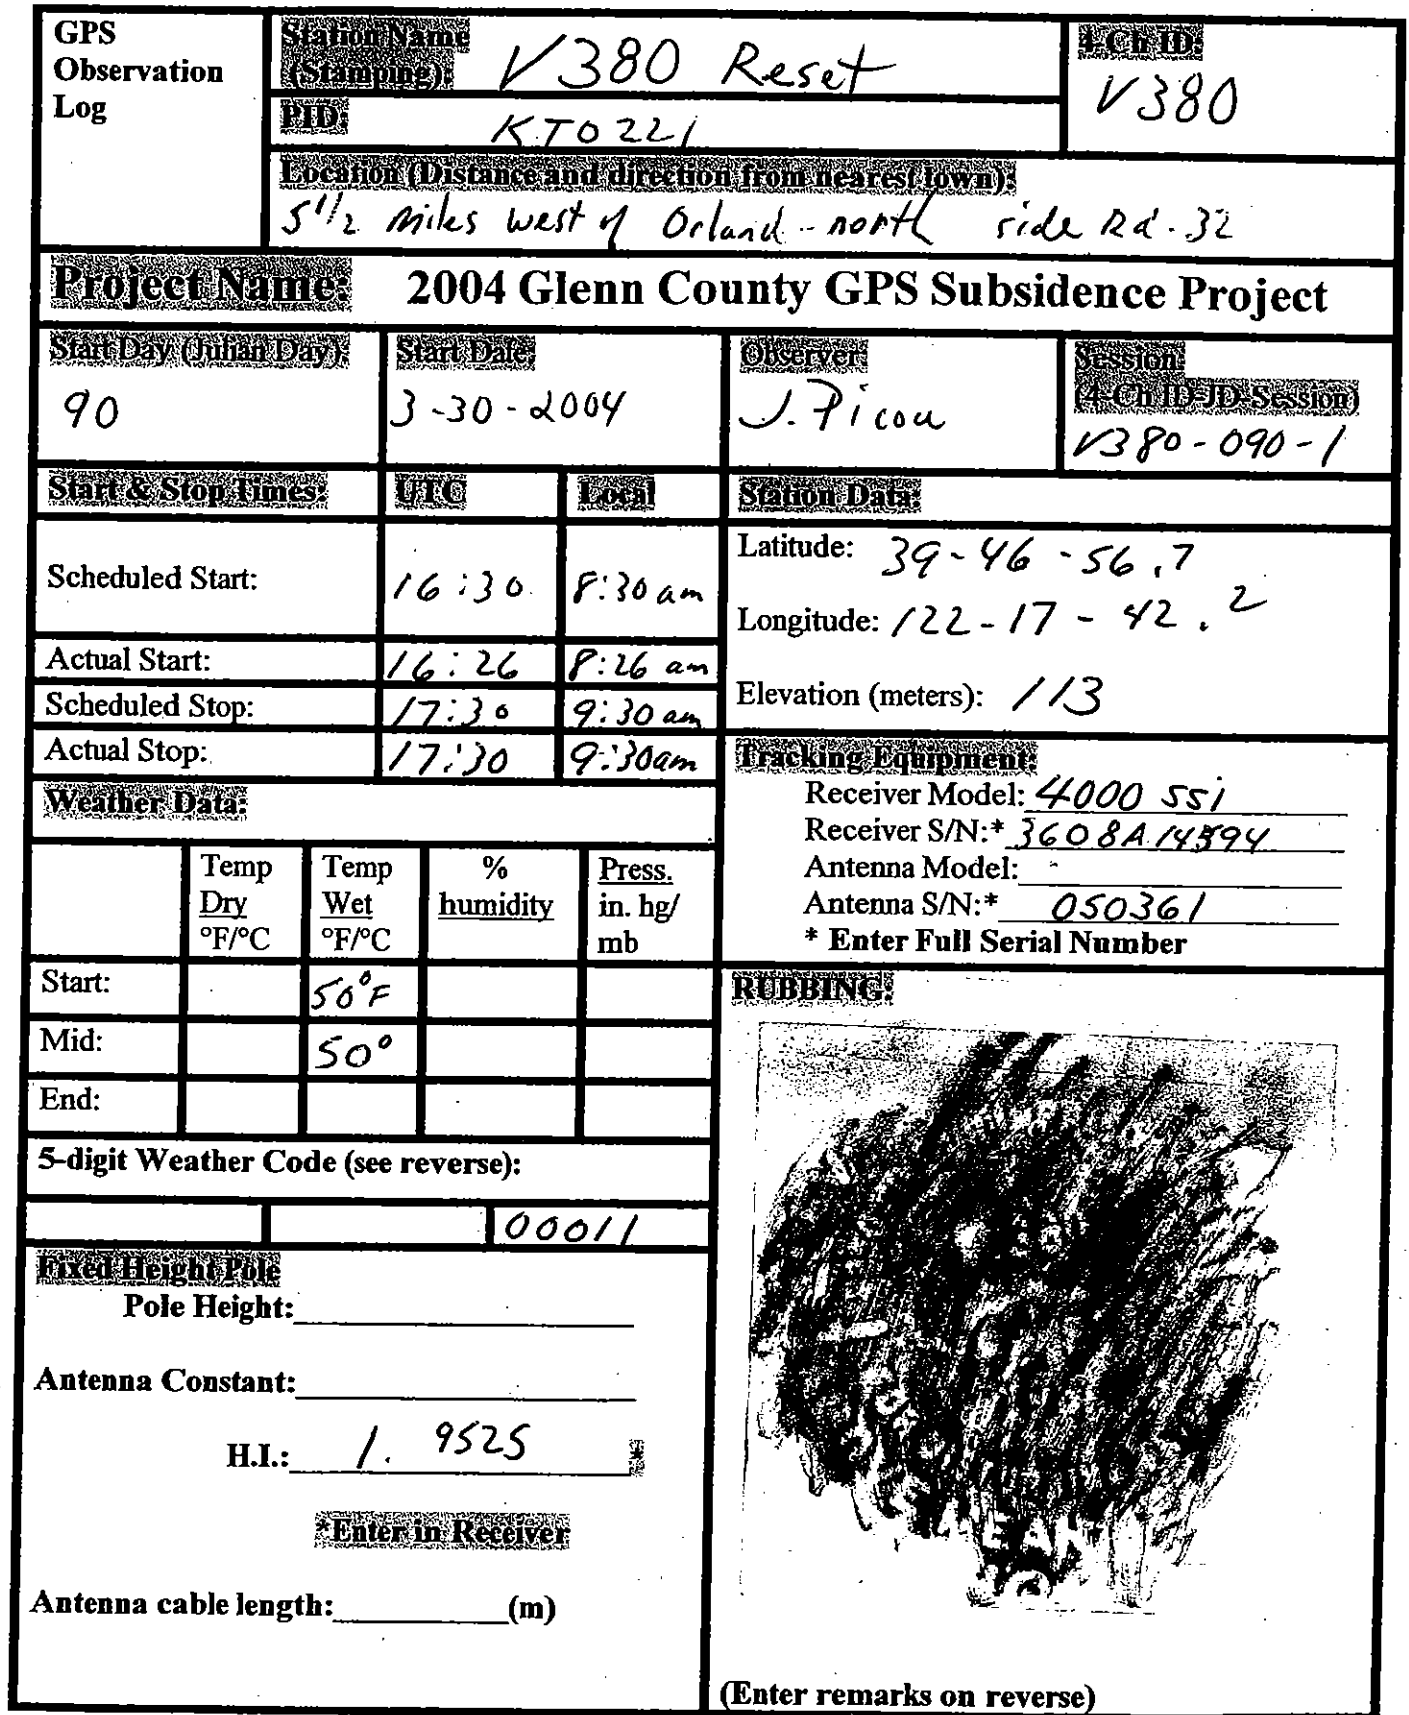 GPS
Observation
Log
Station Name
(Stamping): V380 Reset
PID: KT0221
4-Ch ID:
V380
Location (Distance and direction from nearest town):
5 1/2 miles west of Orland - north side Rd. 32
Project Name: 2004 Glenn County GPS Subsidence Project
Start Day (Julian Day):
90
Start Date:
3-30-2004
Observer:
J. Picou
Session:
(4-Ch ID-JD-Session)
V380-090-1
Start & Stop Times: UTC Local
Scheduled Start: 16:30 8:30 am
Actual Start: 16:26 8:26 am
Scheduled Stop: 17:30 9:30 am
Actual Stop: 17:30 9:30am
Station Data:
Latitude: 39-46-56.7
Longitude: 122-17-42.2
Elevation (meters): 113
Tracking Equipment:
Receiver Model: 4000 SSi
Receiver S/N:*
Antenna Model:
Antenna S/N:* 050361
* Enter Full Serial Number
Weather Data:
Temp Dry °F/°C
Temp Wet °F/°C
% humidity
Press. in. hg/ mb
Start: 50°F
Mid: 50°
End:
5-digit Weather Code (see reverse):
00011
Fixed Height Pole
Pole Height:
Antenna Constant:
H.I.: 1.9525 *
*Enter in Receiver
Antenna cable length: (m)
RUBBING:
(Enter remarks on reverse)